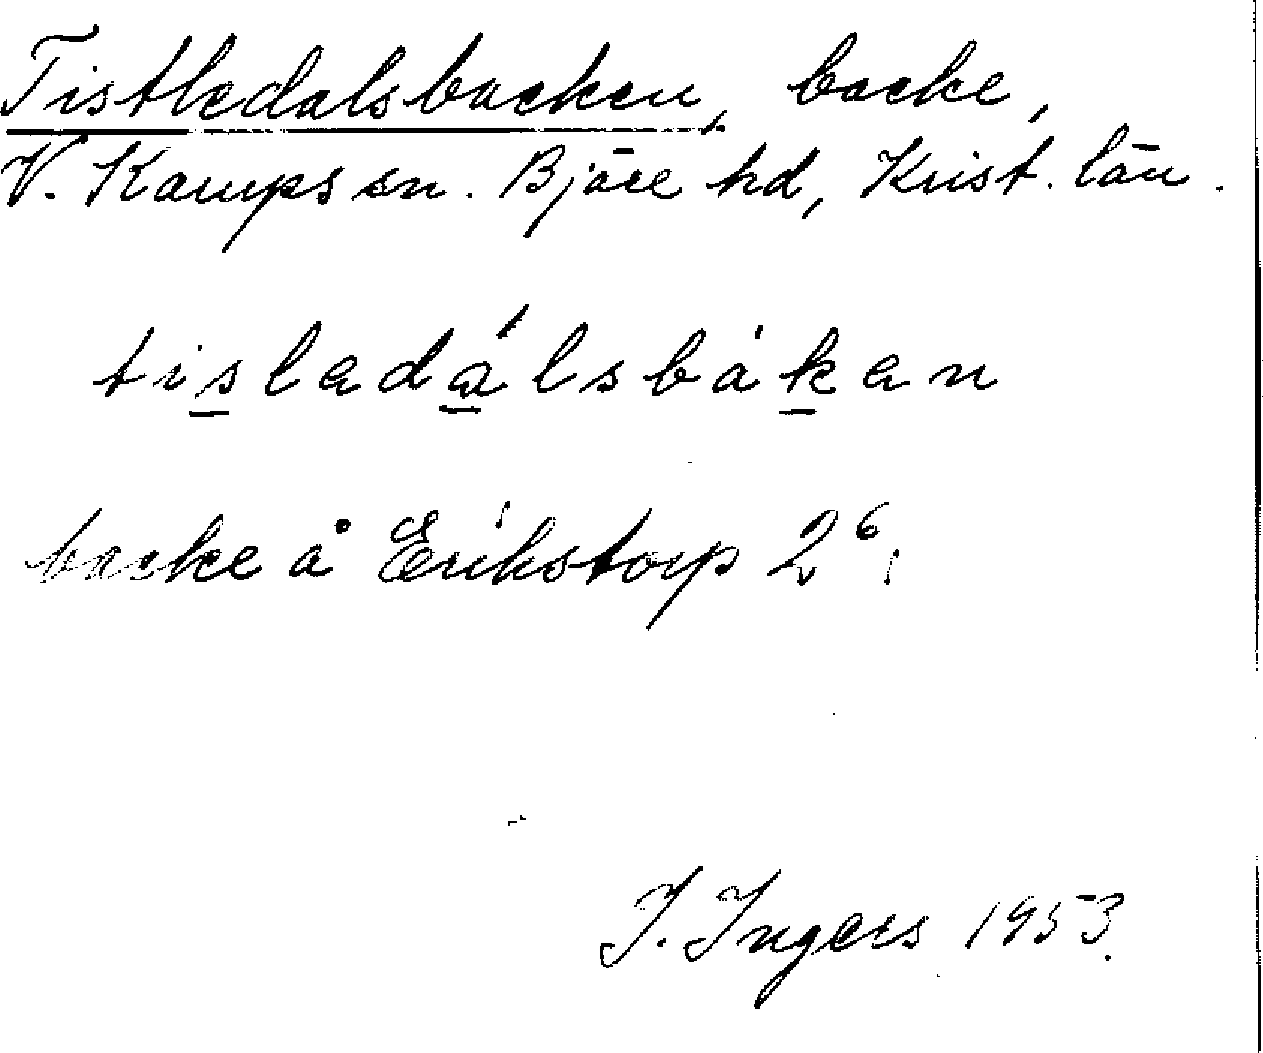 Tistledalsbacken, backe,
V. Karups sn. Bjäre hd, Krist. län.
tisladálsbákan
backe å Erikstorp 2⁶.
I. Ingers 1953.